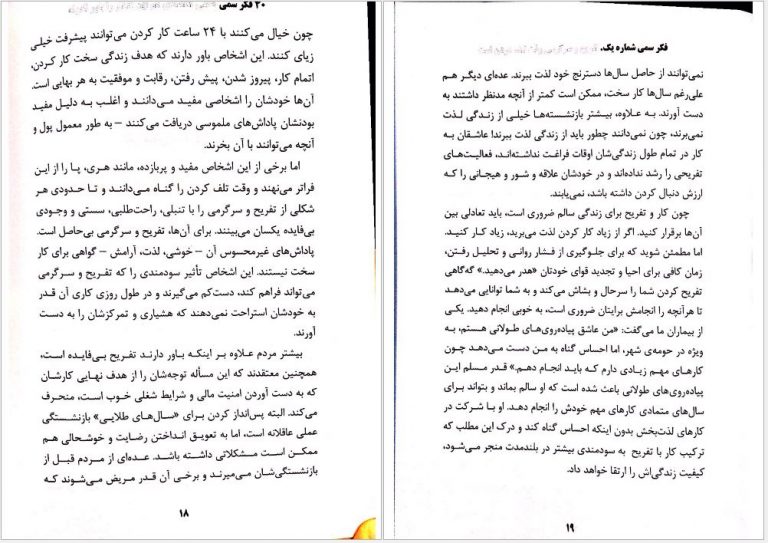 ۲۰ فکر سمی
چون خیال می‌کنند با ۲۴ ساعت کار کردن می‌توانند پیشرفت خیلی
زیای کنند. این اشخاص باور دارند که هدف زندگی سخت کار کردن،
اتمام کار، پیروز شدن، پیش رفتن، رقابت و موفقیت به هر بهایی است.
آن‌ها خودشان را اشخاصی مفید می‌دانند و اغلب به دلیل مفید
بودنشان پاداش‌های ملموسی دریافت می‌کنند – به طور معمول پول و
آنچه می‌توانند با آن بخرند.
اما برخی از این اشخاص مفید و پربازده، مانند هری، پا را از این
فراتر می‌نهند و وقت تلف کردن را گناه می‌دانند و تا حدودی هر
شکلی از تفریح و سرگرمی را با تنبلی، راحت‌طلبی، سستی و وجودی
بی‌فایده یکسان می‌بینند. برای آن‌ها، تفریح و سرگرمی بی‌حاصل است.
پاداش‌های غیرمحسوس آن – خوشی، لذت، آرامش – گواهی برای کار
سخت نیستند. این اشخاص تأثیر سودمندی را که تفریح و سرگرمی
می‌تواند فراهم کند، دست‌کم می‌گیرند و در طول روزی کاری آن قدر
به خودشان استراحت نمی‌دهند که هشیاری و تمرکزشان را به دست
آورند.
بیشتر مردم علاوه بر اینکه باور دارند تفریح بی‌فایده است،
همچنین معتقدند که این مسأله توجه‌شان را از هدف نهایی کارشان
که به دست آوردن امنیت مالی و شرایط شغلی خوب است، منحرف
می‌کند. البته پس‌انداز کردن برای «سال‌های طلایی» بازنشستگی
عملی عاقلانه است، اما به تعویق انداختن رضایت و خوشحالی هم
ممکن است مشکلاتی داشته باشد. عده‌ای از مردم قبل از
بازنشستگی‌شان می‌میرند و برخی آن قدر مریض می‌شوند که
۱۸
فکر سمی شماره یک.
نمی‌توانند از حاصل سال‌ها دسترنج خود لذت ببرند. عده‌ای دیگر هم
علی‌رغم سال‌ها کار سخت، ممکن است کمتر از آنچه مدنظر داشتند به
دست آورند. به علاوه، بیشتر بازنشسته‌ها خیلی از زندگی لذت
نمی‌برند، چون نمی‌دانند چطور باید از زندگی لذت ببرند! عاشقان به
کار در تمام طول زندگی‌شان اوقات فراغت نداشته‌اند، فعالیت‌های
تفریحی را رشد نداده‌اند و در خودشان علاقه و شور و هیجانی را که
ارزش دنبال کردن داشته باشد، نمی‌یابند.
چون کار و تفریح برای زندگی سالم ضروری است، باید تعادلی بین
آن‌ها برقرار کنید. اگر از زیاد کار کردن لذت می‌برید، زیاد کار کنید.
اما مطمئن شوید که برای جلوگیری از فشار روانی و تحلیل رفتن،
زمان کافی برای احیا و تجدید قوای خودتان «هدر می‌دهید.» گه‌گاهی
تفریح کردن شما را سرحال و بشاش می‌کند و به شما توانایی می‌دهد
تا هرآنچه را انجامش برایتان ضروری است، به خوبی انجام دهید. یکی
از بیماران ما می‌گفت: «من عاشق پیاده‌روی‌های طولانی هستم، به
ویژه در حومه‌ی شهر، اما احساس گناه به من دست می‌دهد چون
کارهای مهم زیادی دارم که باید انجام دهم.» قدر مسلم این
پیاده‌روی‌های طولانی باعث شده است که او سالم بماند و بتواند برای
سال‌های متمادی کارهای مهم خودش را انجام دهد. او با شرکت در
کارهای لذت‌بخش بدون اینکه احساس گناه کند و درک این مطلب که
ترکیب کار با تفریح به سودمندی بیشتر در بلندمدت منجر می‌شود،
کیفیت زندگی‌اش را ارتقا خواهد داد.
۱۹